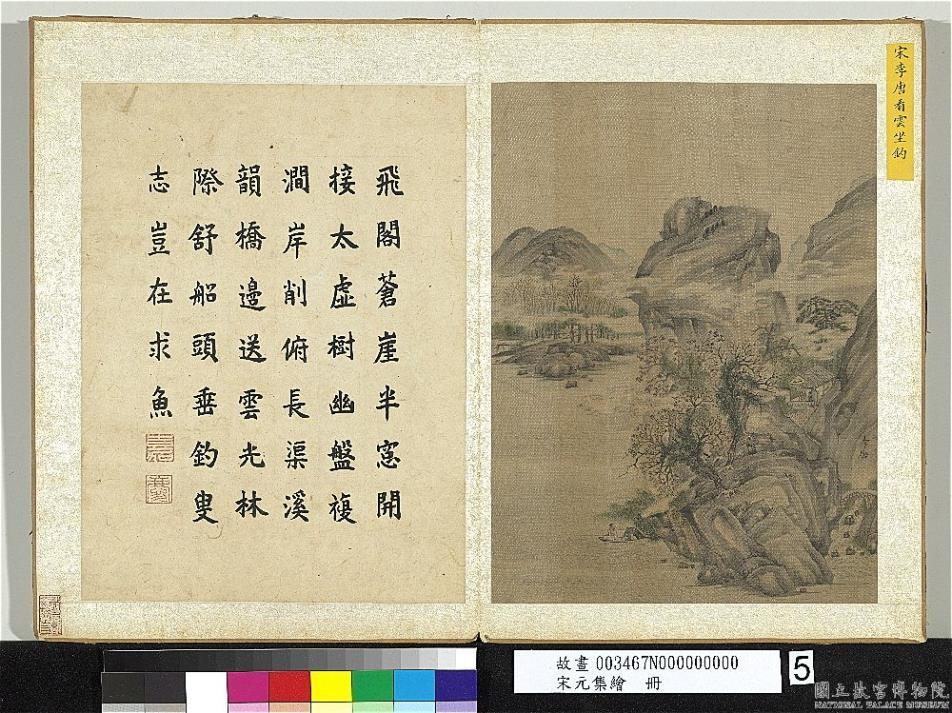 宋李唐看雲坐釣
飛閣蒼崖半窓開
接太虛樹幽盤複
澗岸削俯長渠溪
韻橋邊送雲光林
際舒船頭垂釣叟
志豈在求魚
故畫 003467N000000000
宋元集繪 冊
5
國立故宮博物院
NATIONAL PALACE MUSEUM